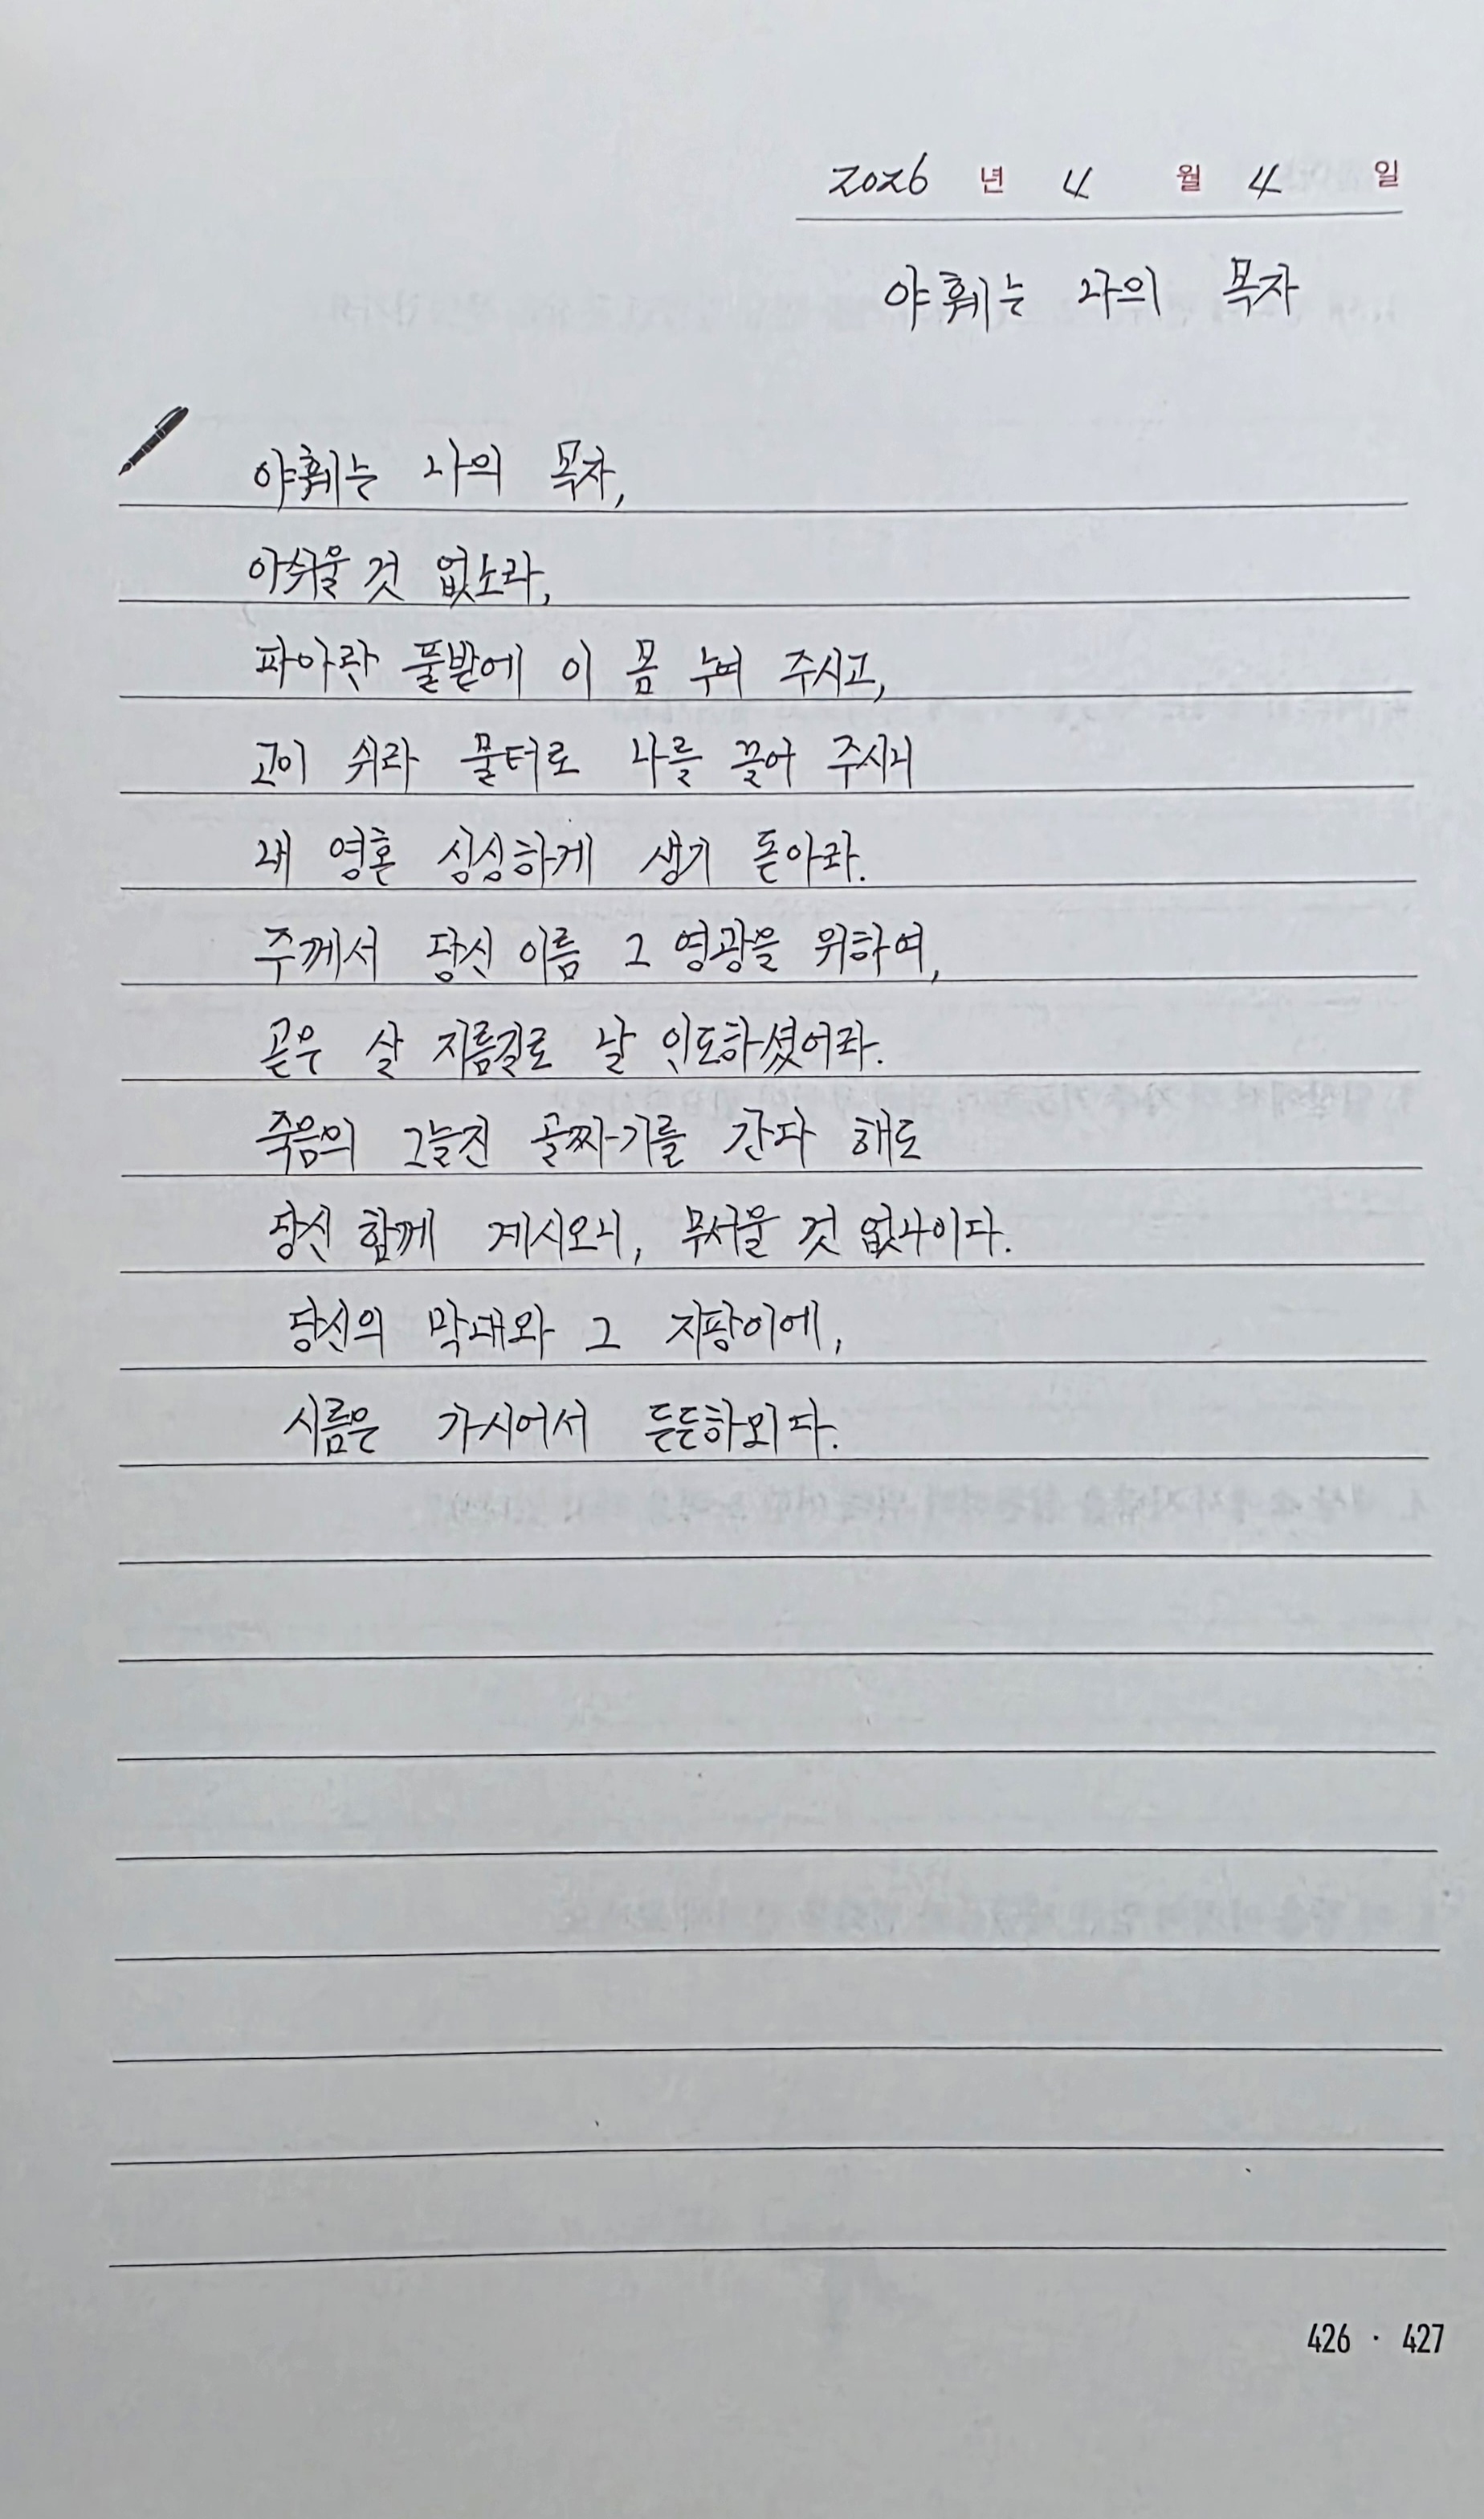 2026 년 4 월 4 일
야훼는 나의 목자
야훼는 나의 목자,
아쉬울 것 없노라,
파아란 풀밭에 이 몸 누여 주시고,
고이 쉬라 물터로 나를 끌어 주시니
내 영혼 싱싱하게 생기 돋아라.
주께서 당신 이름 그 영광을 위하여,
곧우 살 지름길로 날 인도하셨어라.
죽음의 그늘진 골짜기를 간다 해도
당신 함께 계시오니, 무서울 것 없나이다.
당신의 막대와 그 지팡이에,
시름은 가시어서 든든하외다.
426 · 427